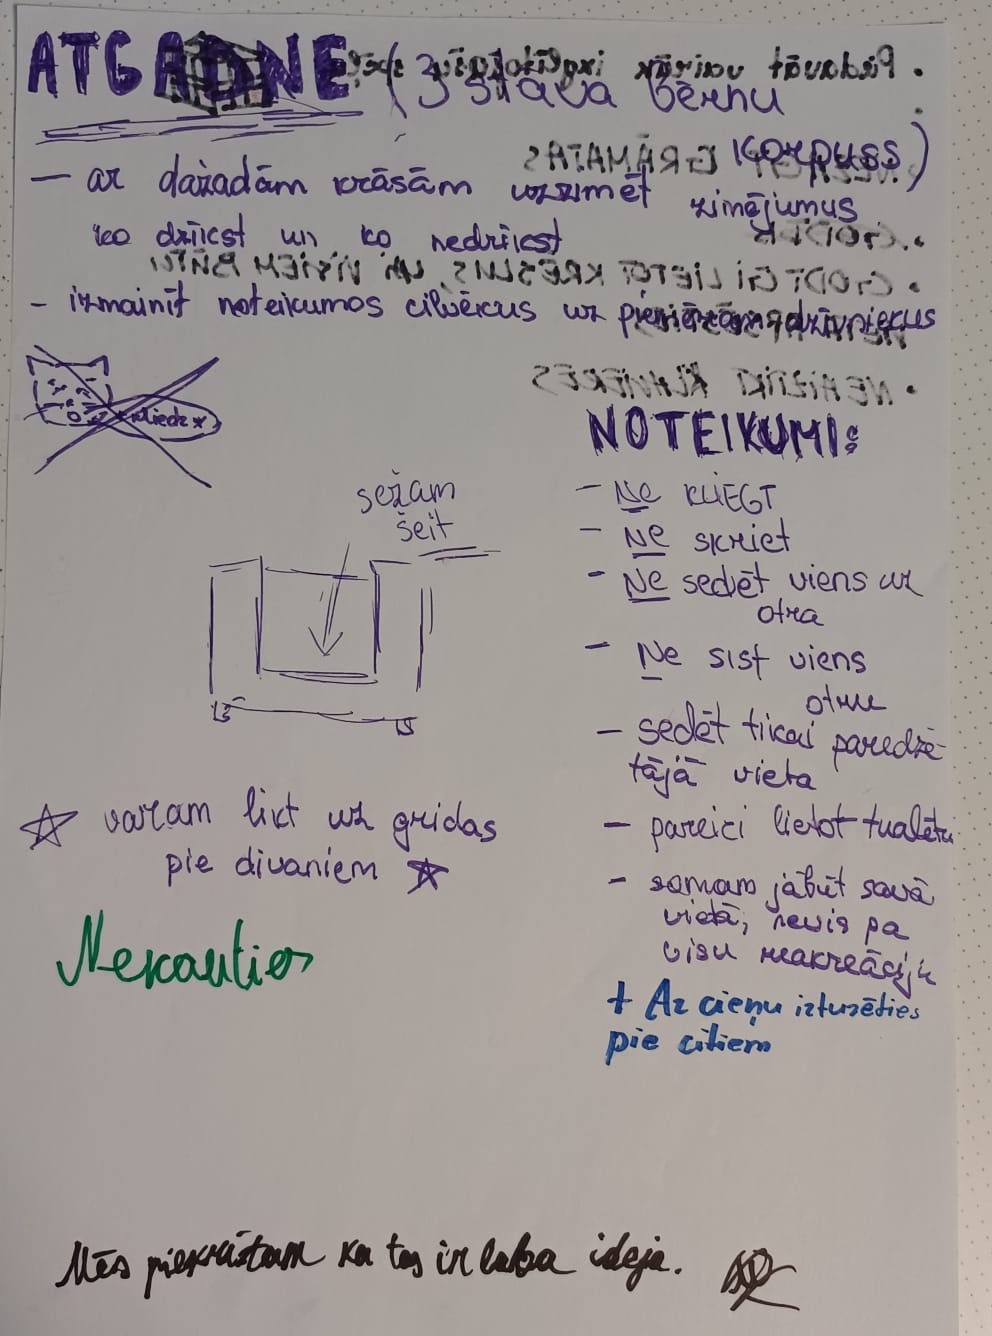 ATGADNE (3 stāva bērnu
korpuss)
— ar dažadām krāsām uzzīmēt zīmējumus
ko drīkst un ko nedrīkst
- izmainīt noteikumos cilvēkus uz piemēram dzīvniekus
NOTEIKUMI:
- Ne KLIEGT
- Ne skriet
- Ne sedēt viens uz
otra
- Ne sist viens
otru
- sedēt tikai paredzē-
tājā vieta
- pareizi lietot tualeti
- somam jābūt savā
vietā, nevis pa
visu reakreāciju
+ Ar cieņu izturēties
pie citiem
sēžam
šeit
☆ varam likt uz grīdas
pie dīvaniem ☆
Nekauties
Mēs piekrītam ka tas ir laba ideja.